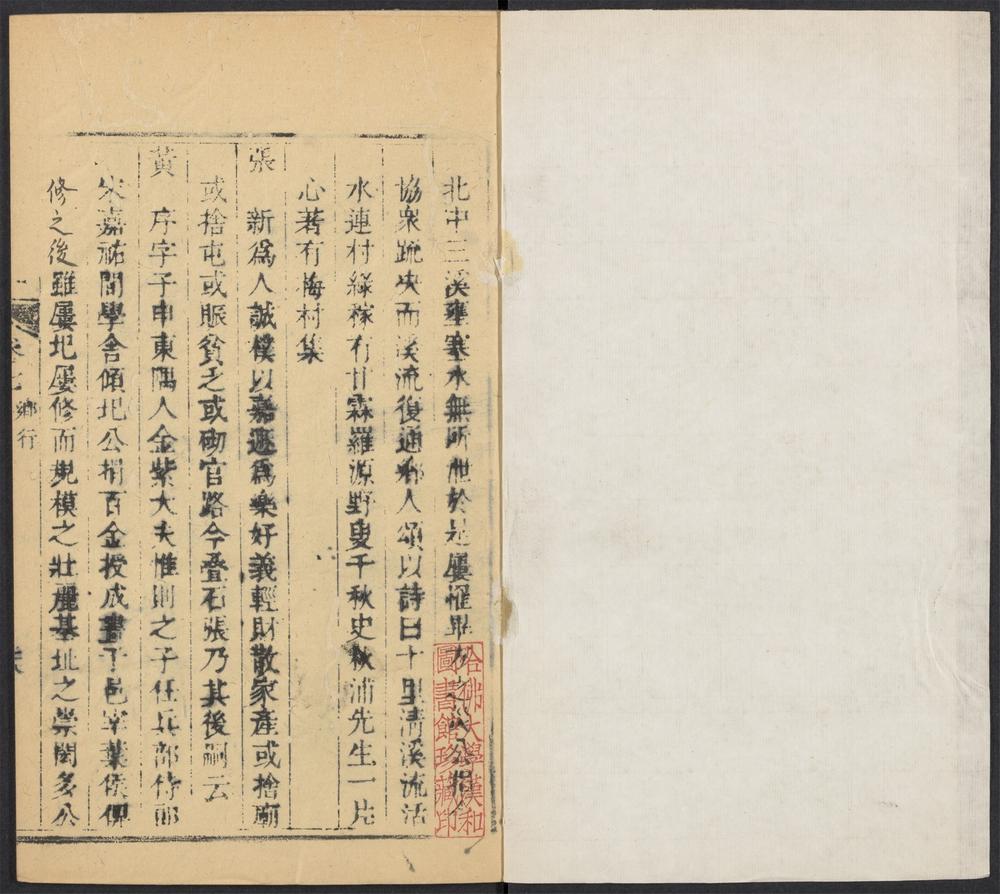 北中三溪壅塞水無所泄於是屢罹旱
協衆疏决而溪流復通鄉人頌以詩曰十里清溪流活
水連村綠稼有甘霖羅源野叟千秋史秋浦先生一片
心著有梅村集
張 新爲人誠樸以嘉遯爲樂好義輕財散家產或捨廟
或捨屯或賑貧乏或砌官路今叠石張乃其後嗣云
黃 序字子申東隅人金紫大夫惟則之子任兵部侍郎
宋嘉祐間學舍傾圯公捐百金授成書于邑宰葉侯俾
修之後雖屢圯屢修而規模之壯麗基址之崇閎多公
卷七 鄉行
哈佛大學漢和
圖書館珍藏印